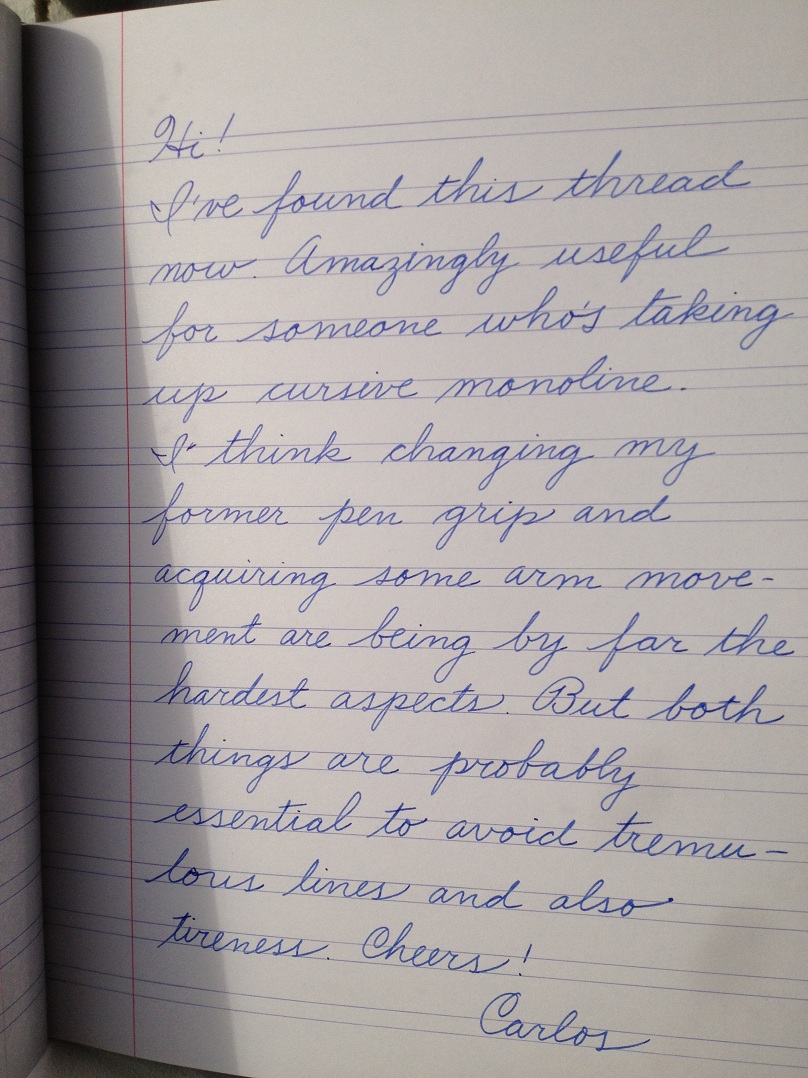 Hi!
I've found this thread
now. Amazingly useful
for someone who's taking
up cursive monoline.
I think changing my
former pen grip and
acquiring some arm move-
ment are being by far the
hardest aspects. But both
things are probably
essential to avoid tremu-
lous lines and also
tireness. Cheers!
Carlos